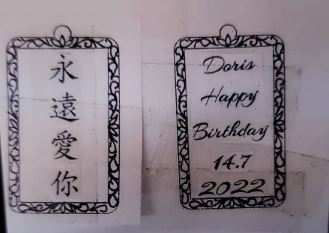 永
遠
愛
你
Doris
Happy
Birthday
14.7
2022